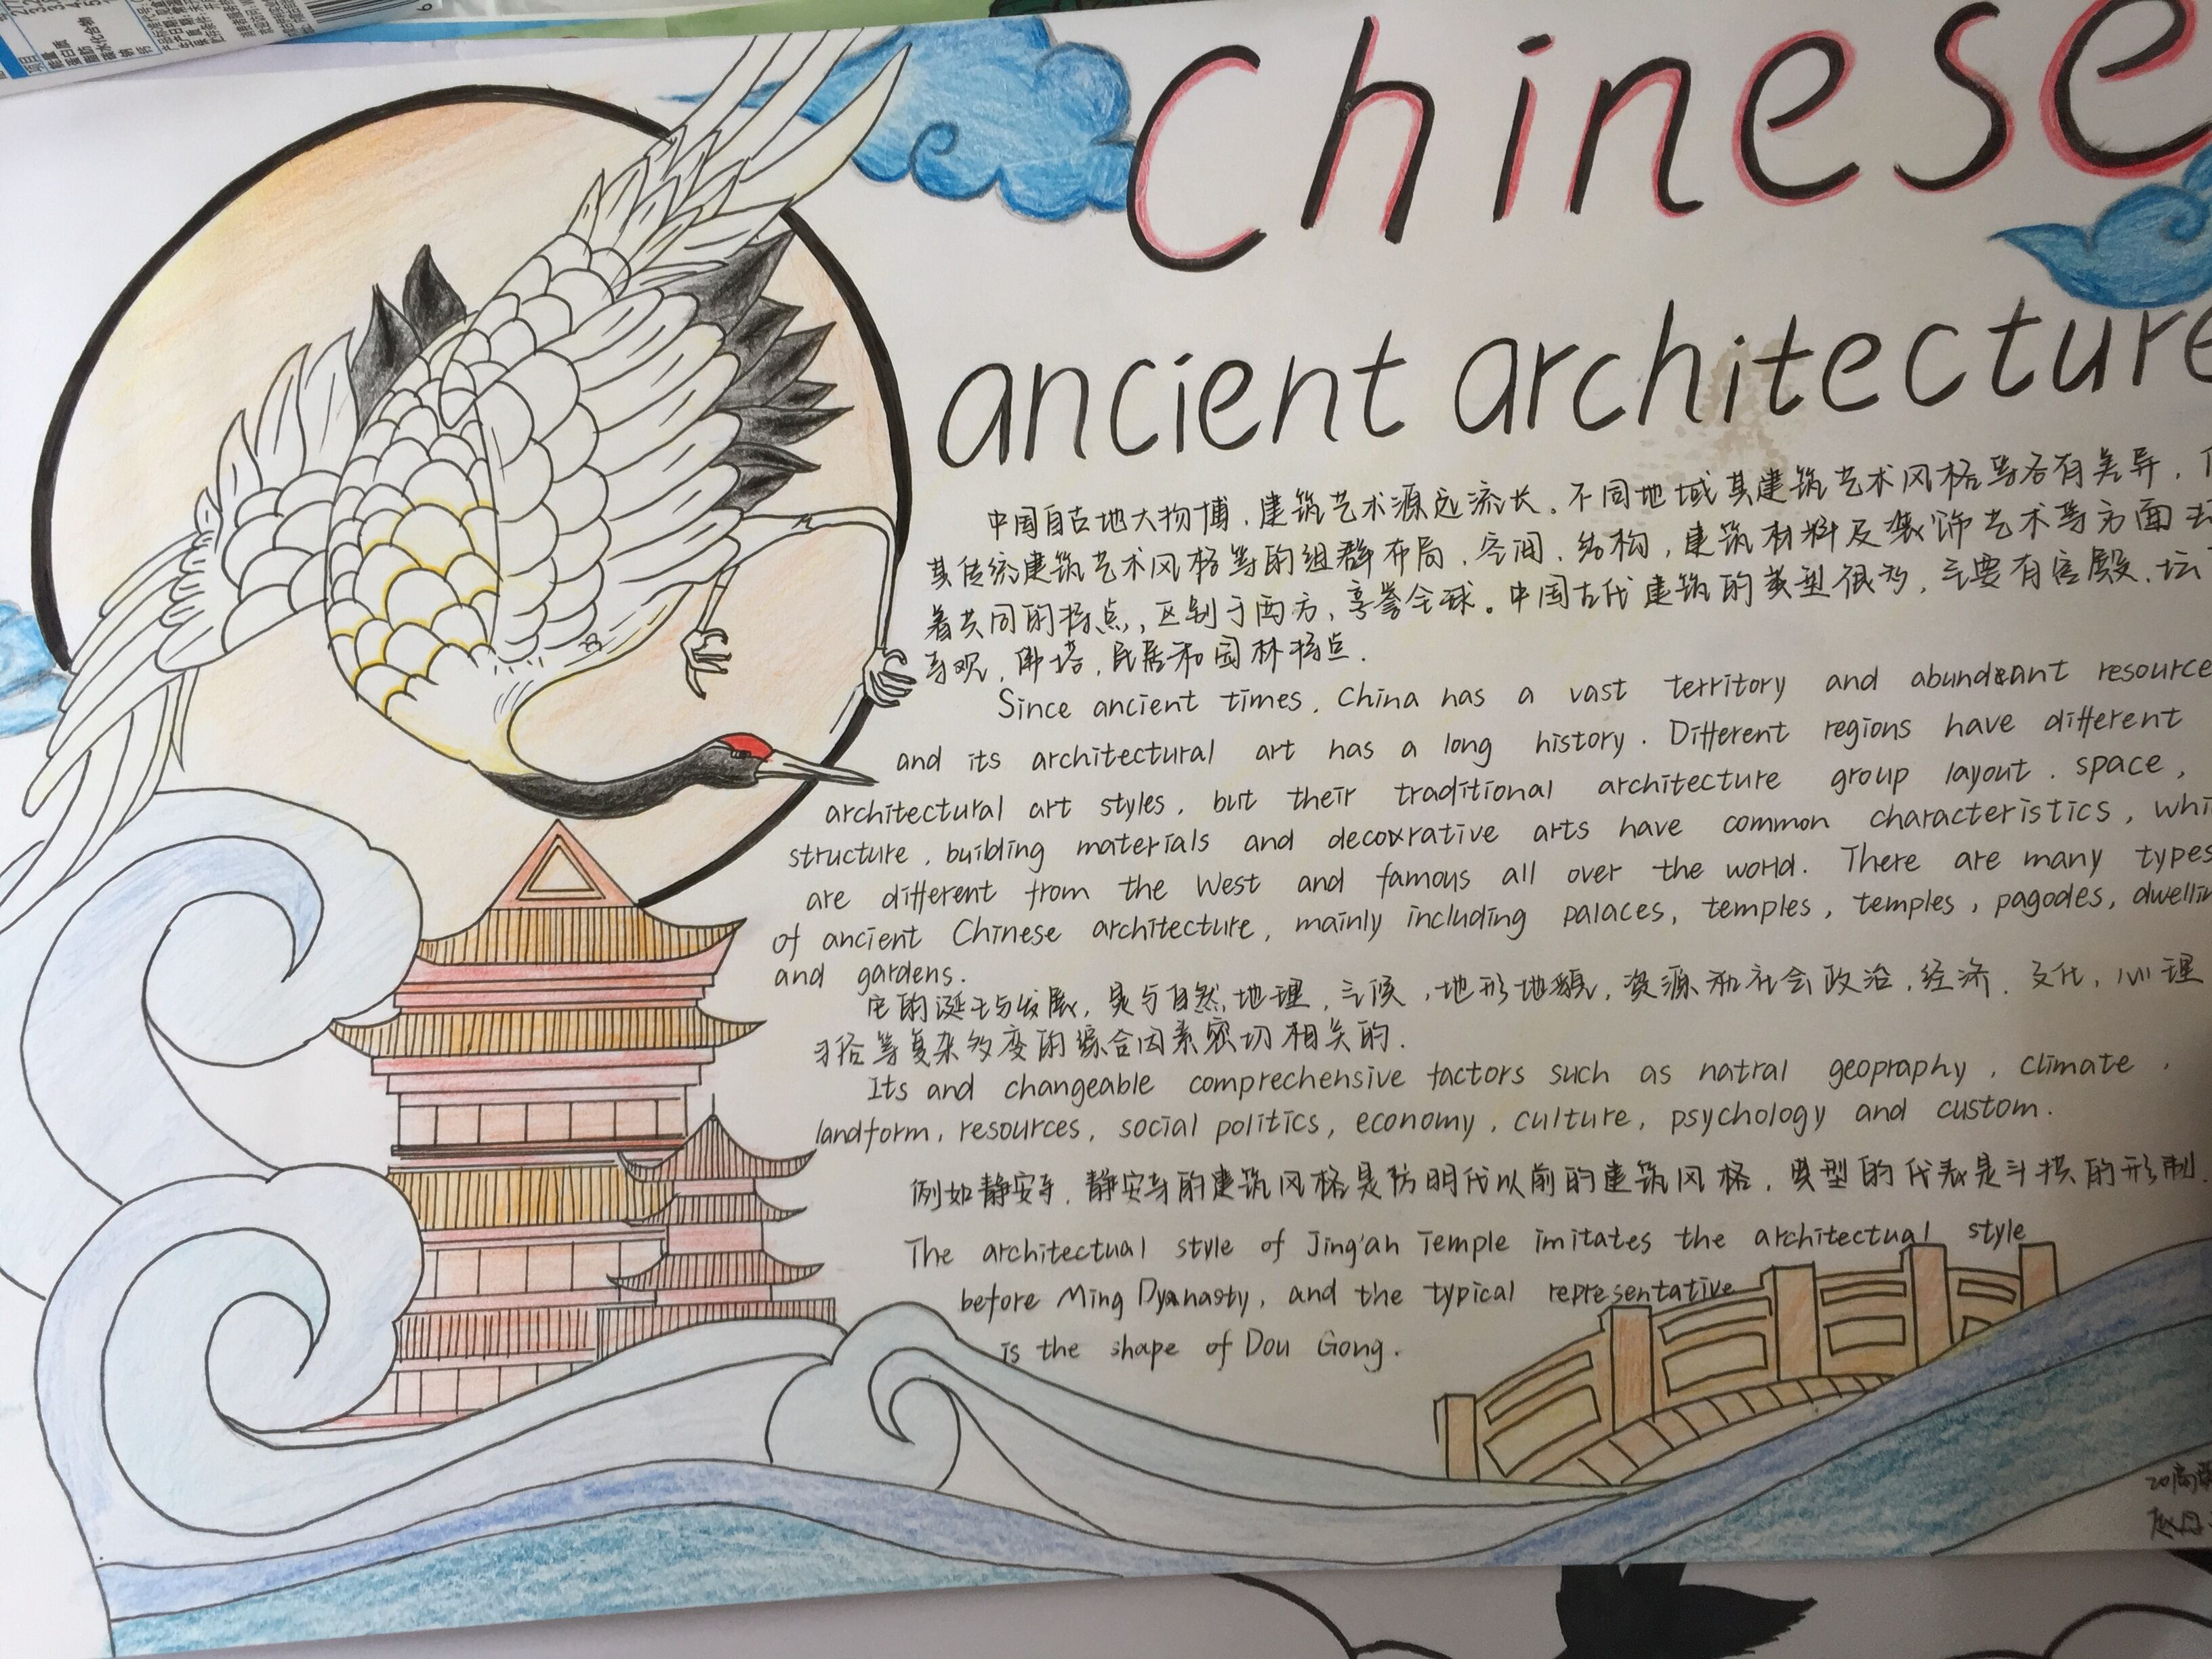 Chinese
ancient architecture
中国自古地大物博,建筑艺术源远流长。不同地域其建筑艺术风格等各有差异,
其传统建筑艺术风格等的组群布局,空间,结构,建筑材料及装饰艺术等方面
着共同的特点,区别于西方,享誉全球。中国古代建筑的类型很多,主要有宫殿,坛
寺观,佛塔,民居和园林特点.
Since ancient times, China has a vast territory and abundant resource
and its architectural art has a long history. Different regions have different
architectural art styles, but their traditional architecture group layout. space,
structure, building materials and decorative arts have common characteristics, whi
are different from the West and famous all over the world. There are many types
of ancient Chinese architecture, mainly including palaces, temples, temples, pagodes, dwellin
and gardens.
它的诞生与发展,是与自然地理,气候,地形地貌,资源和社会政治,经济,文化,心理
习俗等复杂多变的综合因素密切相关的.
Its and changeable comprechensive factors such as natral geopraphy, climate,
landform, resources, social politics, economy, culture, psychology and custom.
例如静安寺,静安寺的建筑风格是仿明代以前的建筑风格,典型的代表是斗拱的形制.
The architectual style of Jing'an Temple imitates the architectual style
before Ming Dyanasty, and the typical representative
is the shape of Dou Gong.